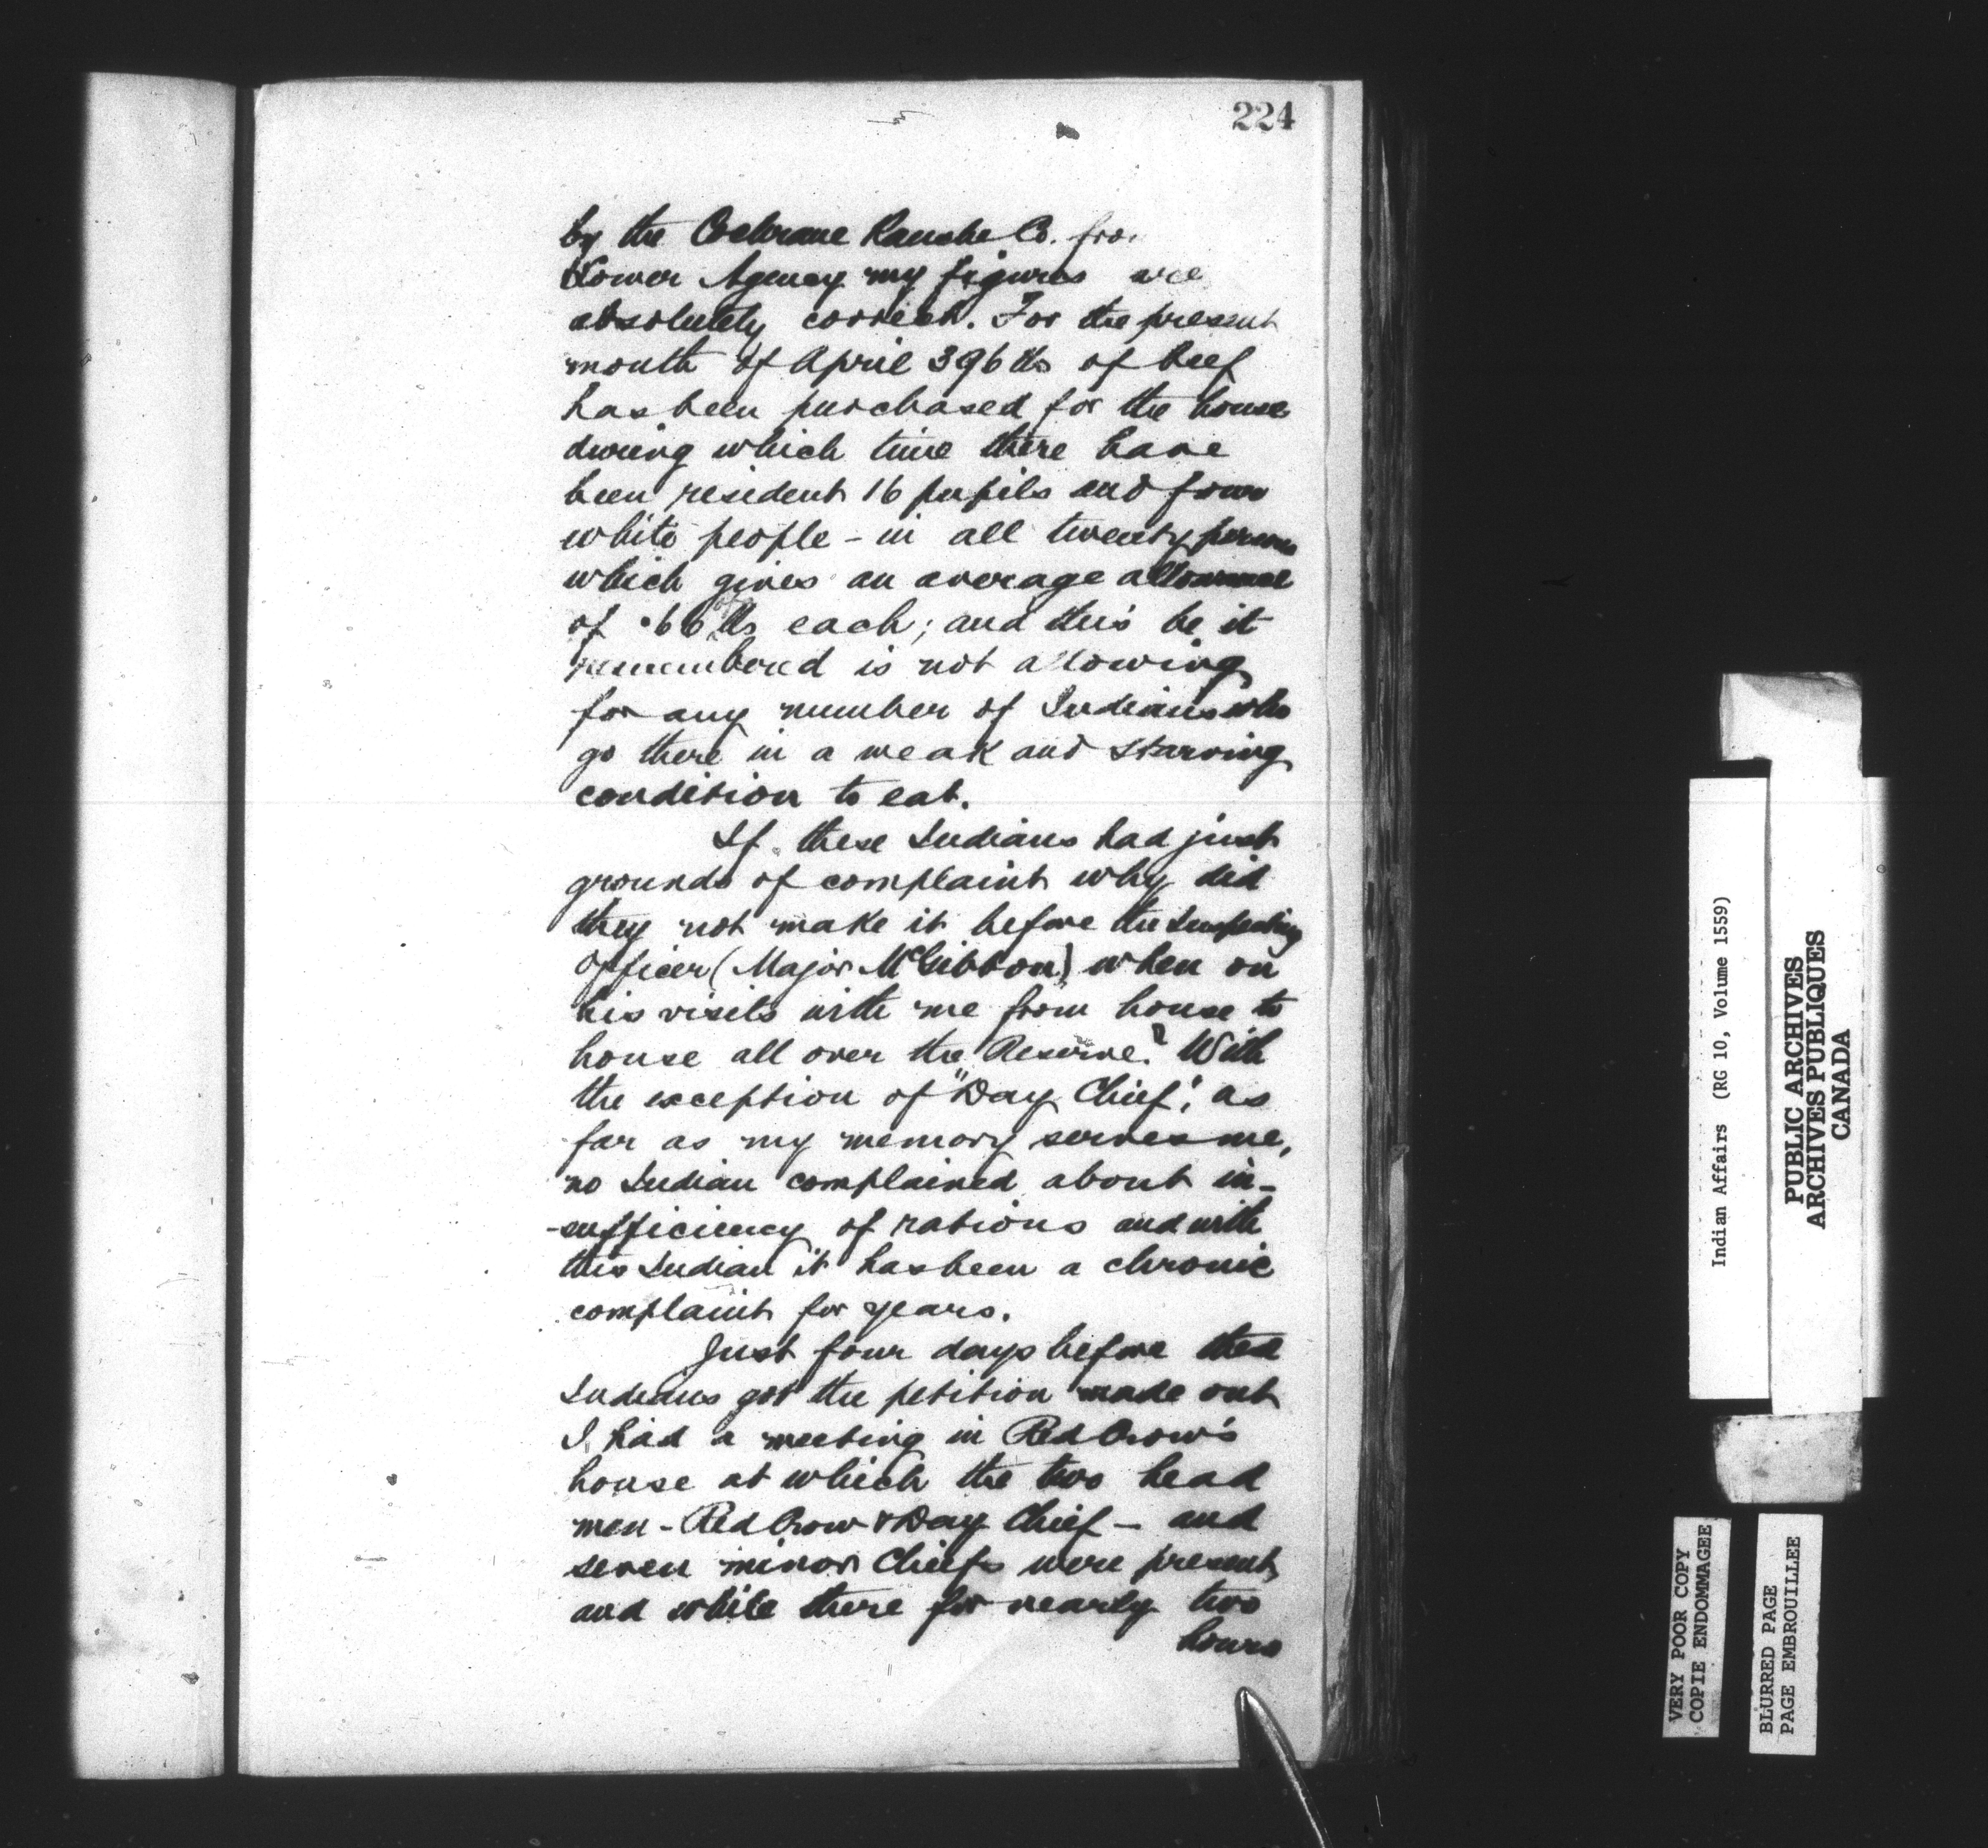 224
by the Cochrane Ranche Co. from
Lower Agency my figures are
absolutely correct. For the present
month of April 396 lbs of beef
has been purchased for the house
during which time there have
been resident 16 pupils and four
white people - in all twenty persons
which gives an average allowance
of .66 lbs each; and this be it
remembered is not allowing
for any number of Indians who
go there in a weak and starving
condition to eat.
If these Indians had just
grounds of complaint why did
they not make it before the Inspecting
Officer (Major McGibbon) when on
his visits with me from house to
house all over the Reserve? With
the exception of "Day Chief", as
far as my memory serves me,
no Indian complained about in-
-sufficiency of rations and with
this Indian it has been a chronic
complaint for years.
Just four days before these
Indians got the petition made out
I had a meeting in Red Crow's
house at which the two head
men - Red Crow & Day Chief - and
seven minor Chiefs were present,
and while there for nearly two
hours
Indian Affairs (RG 10, Volume 1559)
PUBLIC ARCHIVES
ARCHIVES PUBLIQUES
CANADA
VERY POOR COPY
COPIE ENDOMMAGEE
BLURRED PAGE
PAGE EMBROUILLEE